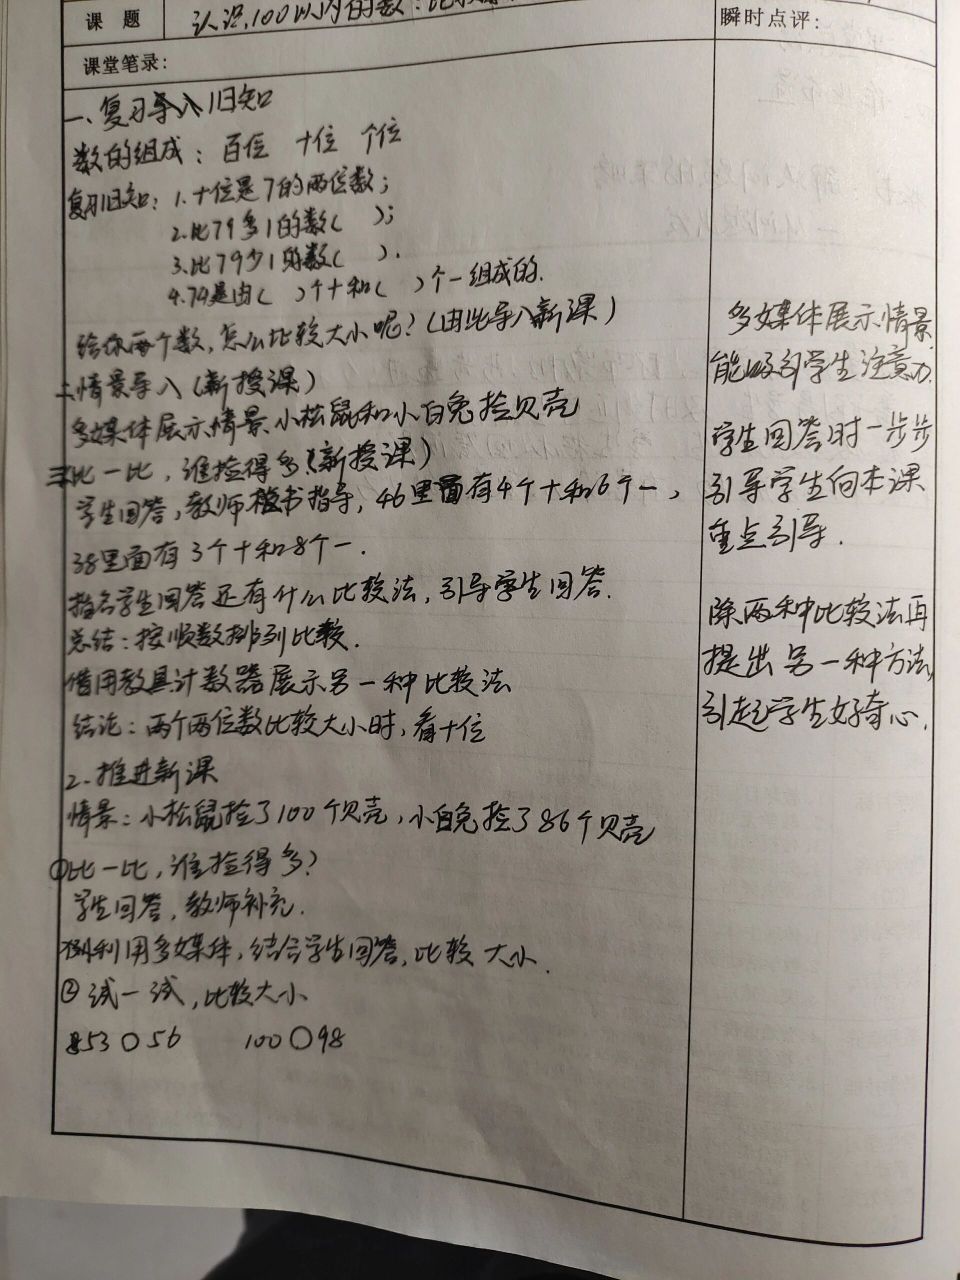 课 题 认识100以内的数：比较
瞬时点评：
课堂笔录：
一、复习导入旧知
数的组成：百位 十位 个位
复习旧知：1.十位是7的两位数；
2.比79多1的数（ ）；
3.比79少1的数（ ）.
4.79是由（ ）个十和（ ）个一组成的.
给你两个数，怎么比较大小呢？（由此导入新课）
二.情景导入（新授课）
多媒体展示情景小松鼠和小白兔捡贝壳
三比一比，谁捡得多（新授课）
学生回答，教师板书指导，46里面有4个十和6个一，
38里面有3个十和8个一.
指名学生回答还有什么比较法，引导学生回答.
总结：按顺数排列比较.
借用教具计数器展示另一种比较法
结论：两个两位数比较大小时，看十位
2.推进新课
情景：小松鼠捡了100个贝壳，小白兔捡了86个贝壳
①比一比，谁捡得多？
学生回答，教师补充.
利用多媒体，结合学生回答，比较大小.
②试一试，比较大小
53○56 100○98
多媒体展示情景
能吸引学生注意力.
学生回答时一步步
引导学生向本课
重点引导.
除两种比较法再
提出另一种方法，
引起学生好奇心.